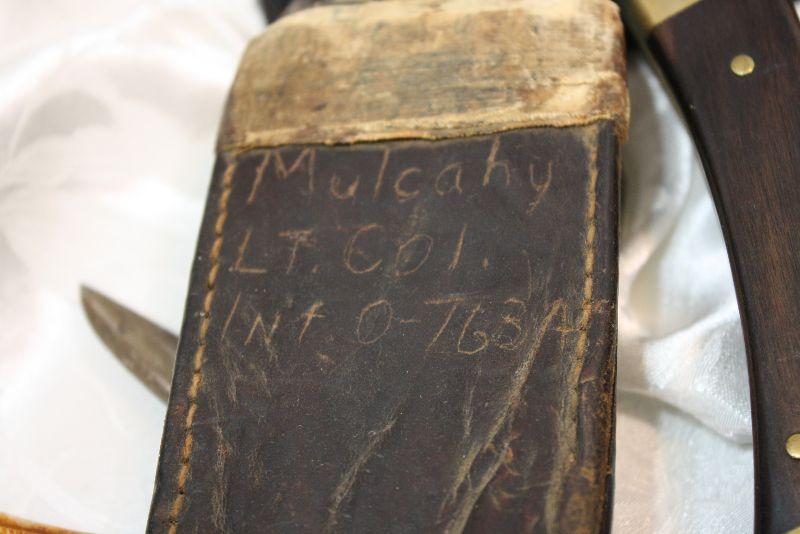 Mulcahy
LT. Col.
Inf O-763